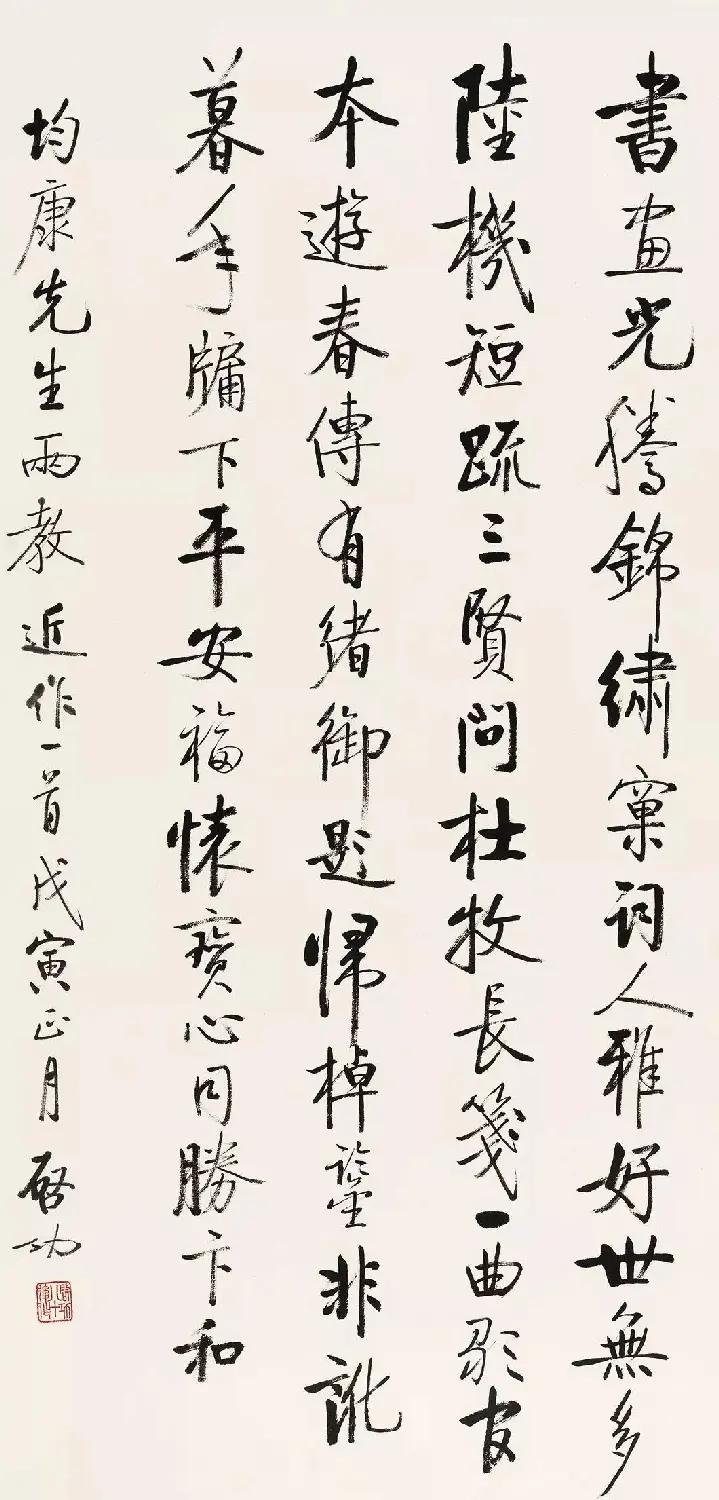 書畫光騰錦繡窠詞人雅好世無多
陸機短疏三賢問杜牧長箋一曲歌官
本遊春傳有緒御題歸棹鑒非訛
暮年牖下平安福懷寶心同勝卞和
均康先生兩教近作一首戊寅正月啓功